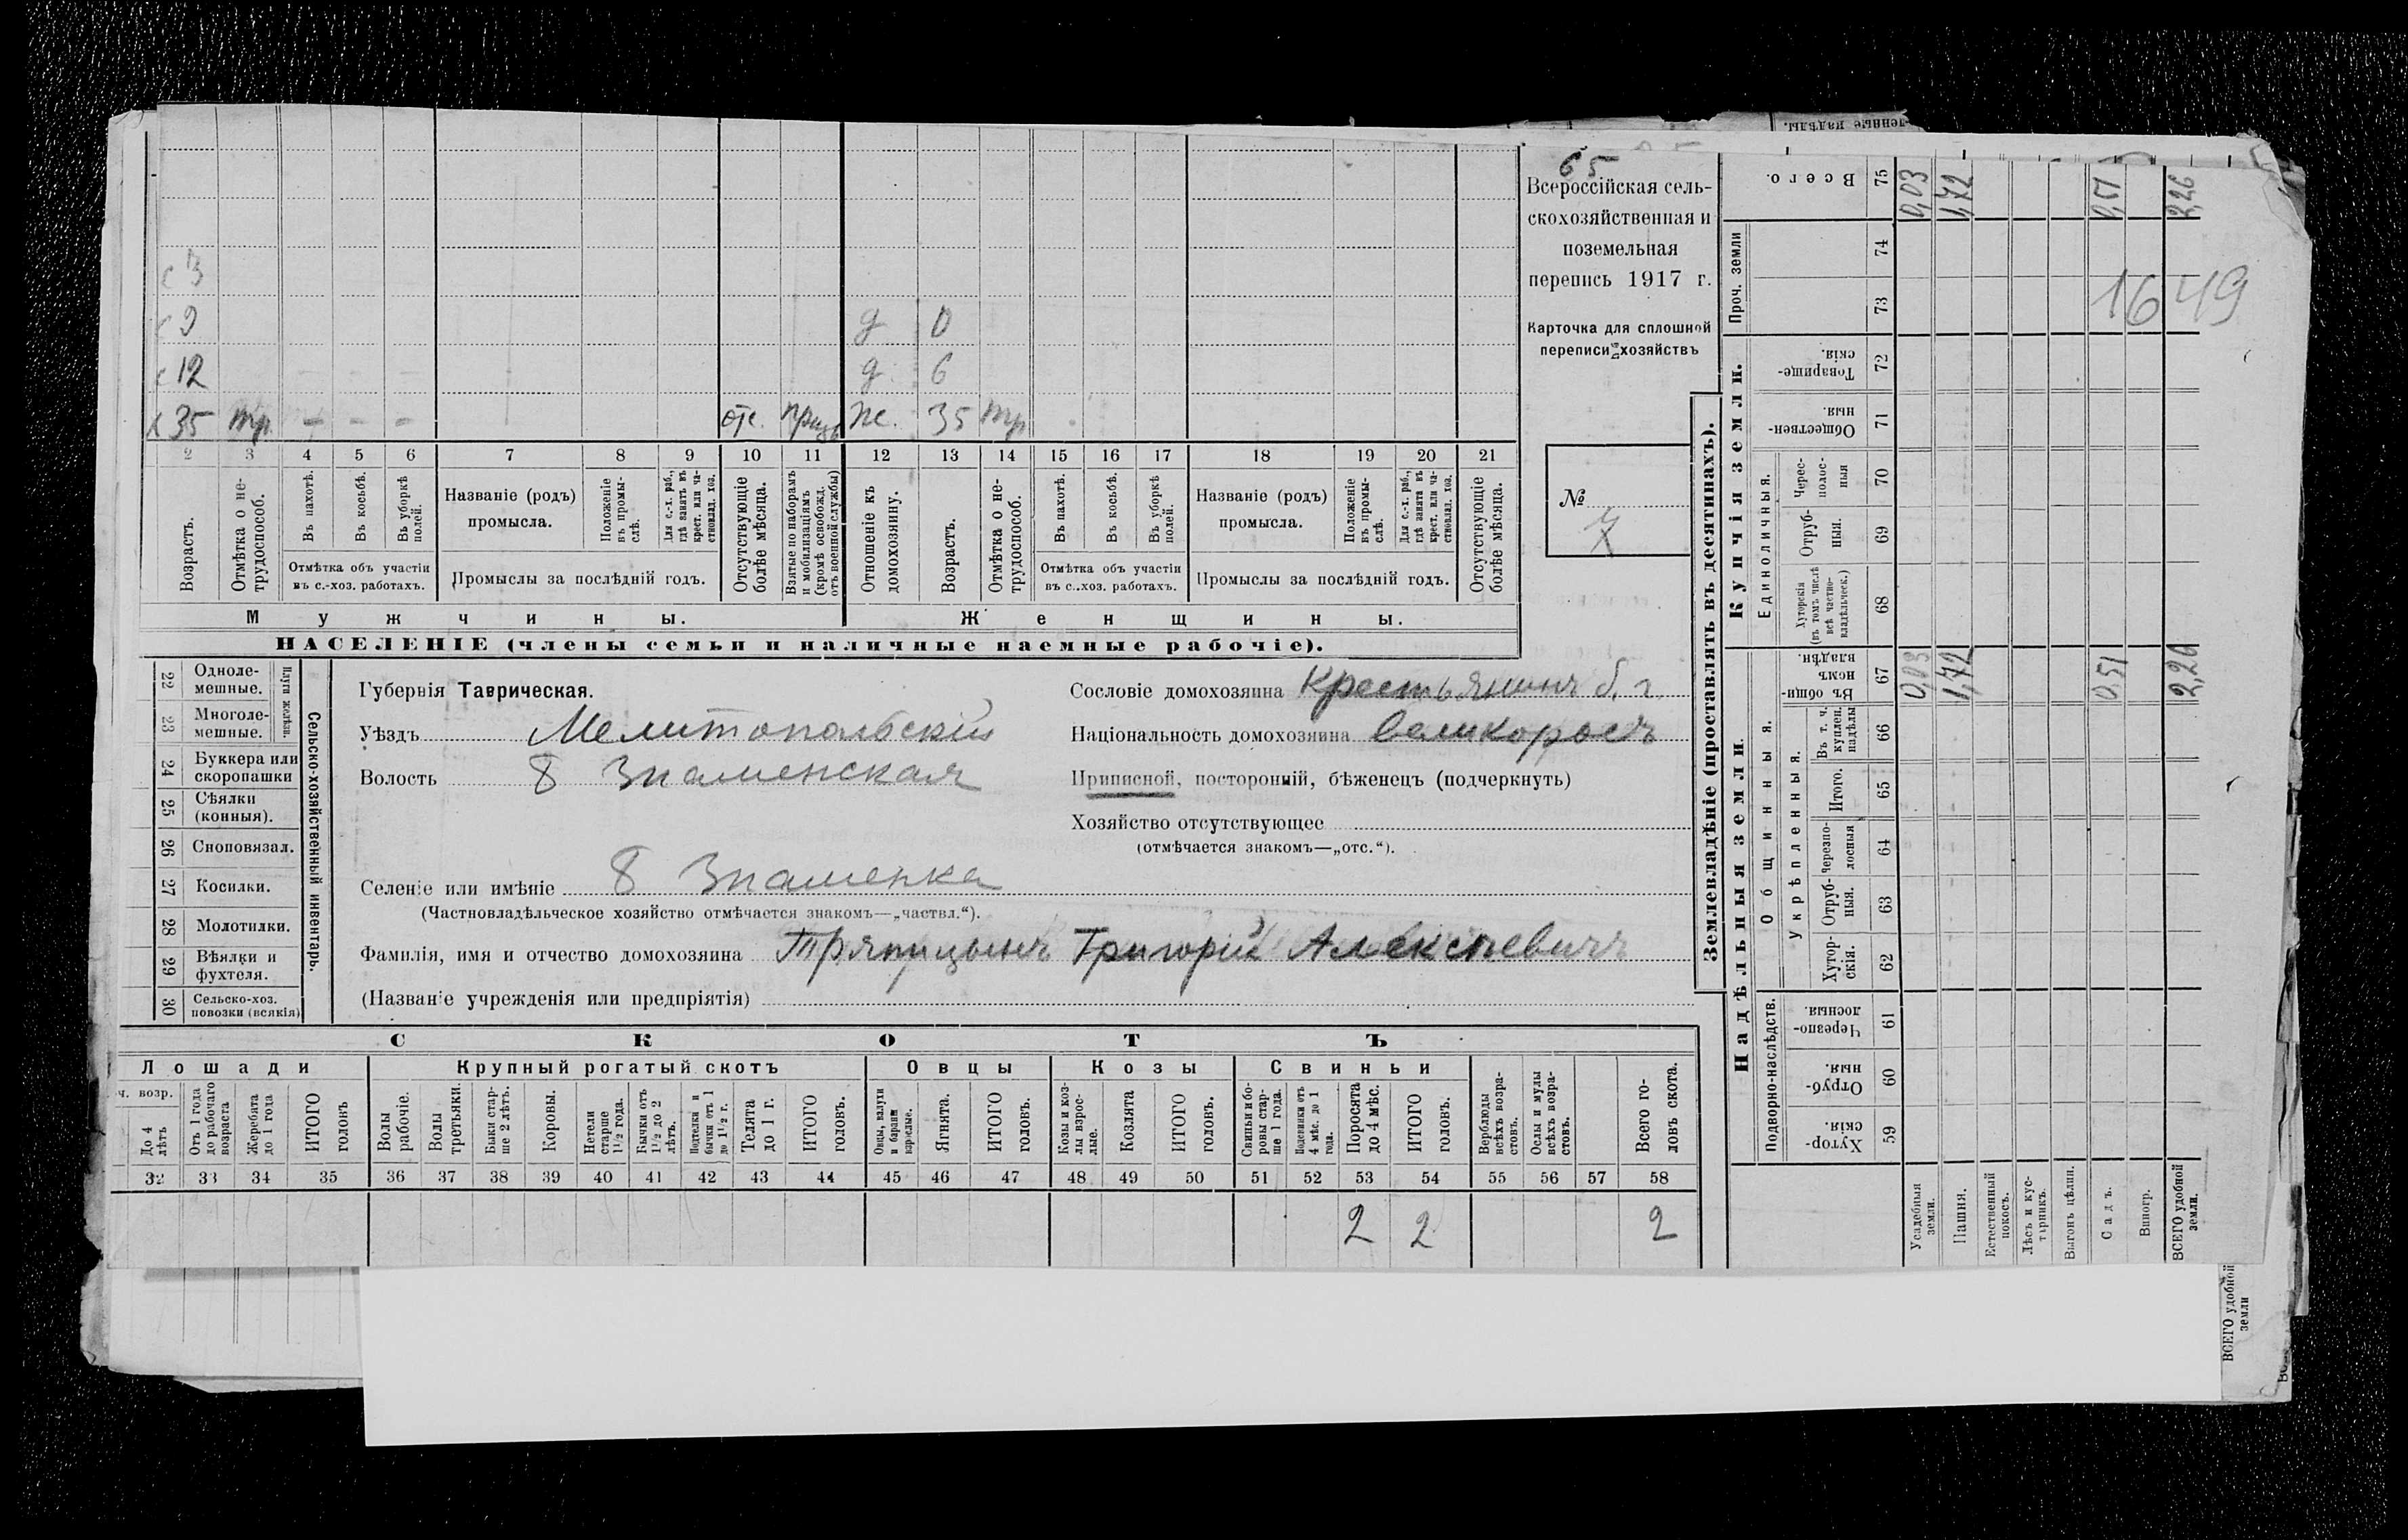 65
Всероссійская сель-
скохозяйственная и
поземельная
перепись 1917 г.
Карточка для сплошной
переписи хозяйствъ
№
7
1649
3
9 д 0
12 д 6
35 тр. - - - отс. приз. Ж. 35 тр
2 3 4 5 6 7 8 9 10 11 12 13 14 15 16 17 18 19 20 21
Возрастъ.
Отмѣтка о не-
трудоспособ.
Въ пахотѣ.
Въ косьбѣ.
Въ уборкѣ
полей.
Отмѣтка объ участіи
въ с.-хоз. работахъ.
Названіе (родъ)
промысла.
Положеніе
въ промы-
слѣ.
Для с.-х. раб.,
гдѣ занятъ въ
крест. или ча-
стновлад. хоз.
Промыслы за послѣдній годъ.
Отсутствующіе
болѣе мѣсяца.
Взятые по наборамъ
и мобилизаціямъ
(кромѣ освобожд.
отъ военной службы)
Отношеніе къ
домохозяину.
Возрастъ.
Отмѣтка о не-
трудоспособ.
Въ пахотѣ.
Въ косьбѣ.
Въ уборкѣ
полей.
Отмѣтка объ участіи
въ с.-хоз. работахъ.
Названіе (родъ)
промысла.
Положеніе
въ промы-
слѣ.
Для с.-х. раб.,
гдѣ занята въ
крест. или ча-
стновлад. хоз.
Промыслы за послѣдній годъ.
Отсутствующіе
болѣе мѣсяца.
Мужчины.
Женщины.
НАСЕЛЕНІЕ (члены семьи и наличные наемные рабочіе).
Сельско-хозяйственный инвентарь.
Плуги желѣзн.
22 Одноле-
мешные.
23 Многоле-
мешные.
24 Буккера или
скоропашки
25 Сѣялки
(конныя).
26 Сноповязал.
27 Косилки.
28 Молотилки.
29 Вѣялки и
фухтеля.
30 Сельско-хоз.
повозки (всякія)
Губернія Таврическая.
Уѣздъ Мелитопольскій
Волость Б Знаменская
Селеніе или имѣніе Б Знаменка
(Частновладѣльческое хозяйство отмѣчается знакомъ—„частвл.“).
Фамилія, имя и отчество домохозяина Тряпицынъ Григорій Алексѣевичъ
(Названіе учрежденія или предпріятія)
Сословіе домохозяина Крестьянинъ б. г.
Національность домохозяина Великоросъ
Приписной, посторонній, бѣженецъ (подчеркнуть)
Хозяйство отсутствующее
(отмѣчается знакомъ—„отс.“).
СКОТЪ
Лошади
ч. возр.
До 4
лѣтъ
Отъ 1 года
до рабочаго
возраста
Жеребята
до 1 года
ИТОГО
головъ
Крупный рогатый скотъ
Волы
рабочіе.
Волы
третьяки.
Быки стар-
ше 2 лѣтъ.
Коровы.
Нетели
старше
1½ года.
Бычки отъ
1½ до 2
лѣтъ.
Подтелки и
бычки отъ 1
до 1½ г.
Телята
до 1 г.
ИТОГО
головъ.
Овцы
Овцы, валухи
и бараны
взрослые.
Ягнята.
ИТОГО
головъ.
Козы
Козы и коз-
лы взрос-
лые.
Козлята
ИТОГО
головъ.
Свиньи
Свиньи и бо-
ровы стар-
ше 1 года.
Подсвинки отъ
4 мѣс. до 1
года.
Поросята
до 4 мѣс.
ИТОГО
головъ.
Верблюды
всѣхъ возра-
стовъ.
Ослы и мулы
всѣхъ возра-
стовъ.
Всего го-
ловъ скота.
32 33 34 35 36 37 38 39 40 41 42 43 44 45 46 47 48 49 50 51 52 53 54 55 56 57 58
2 2 2
Землевладѣніе (проставлять въ десятинахъ).
Надѣльныя земли
Подворно-наслѣдств.
Хутор-
скія.
59
Отруб-
ныя.
60
Черезпо-
лосныя.
61
Общинныя.
Укрѣпленныя.
Хутор-
скія.
62
Отруб-
ныя.
63
Черезпо-
лосныя
64
Итого.
65
Въ т. ч.
куплен.
надѣлы
66
Въ общин-
номъ
владѣн.
67
Купчія земли.
Единоличныя.
Хуторскія
(въ томъ числѣ
всѣ частно-
владѣльческ.)
68
Отруб-
ныя.
69
Черес-
полос-
ныя
70
Обществен-
ныя.
71
Товарище-
скія.
72
Проч. земли
73
74
Всего.
75
Усадебныя
земли. 0,03 0,03
Пашня. 1,72 1,72
Естественный
покосъ.
Лѣсъ и кус-
тарникъ.
Выгонъ цѣлин.
Садъ. 0,51 0,51
Виногр.
ВСЕГО удобной
земли. 2,26 2,26
ВСЕГО удобной
земли